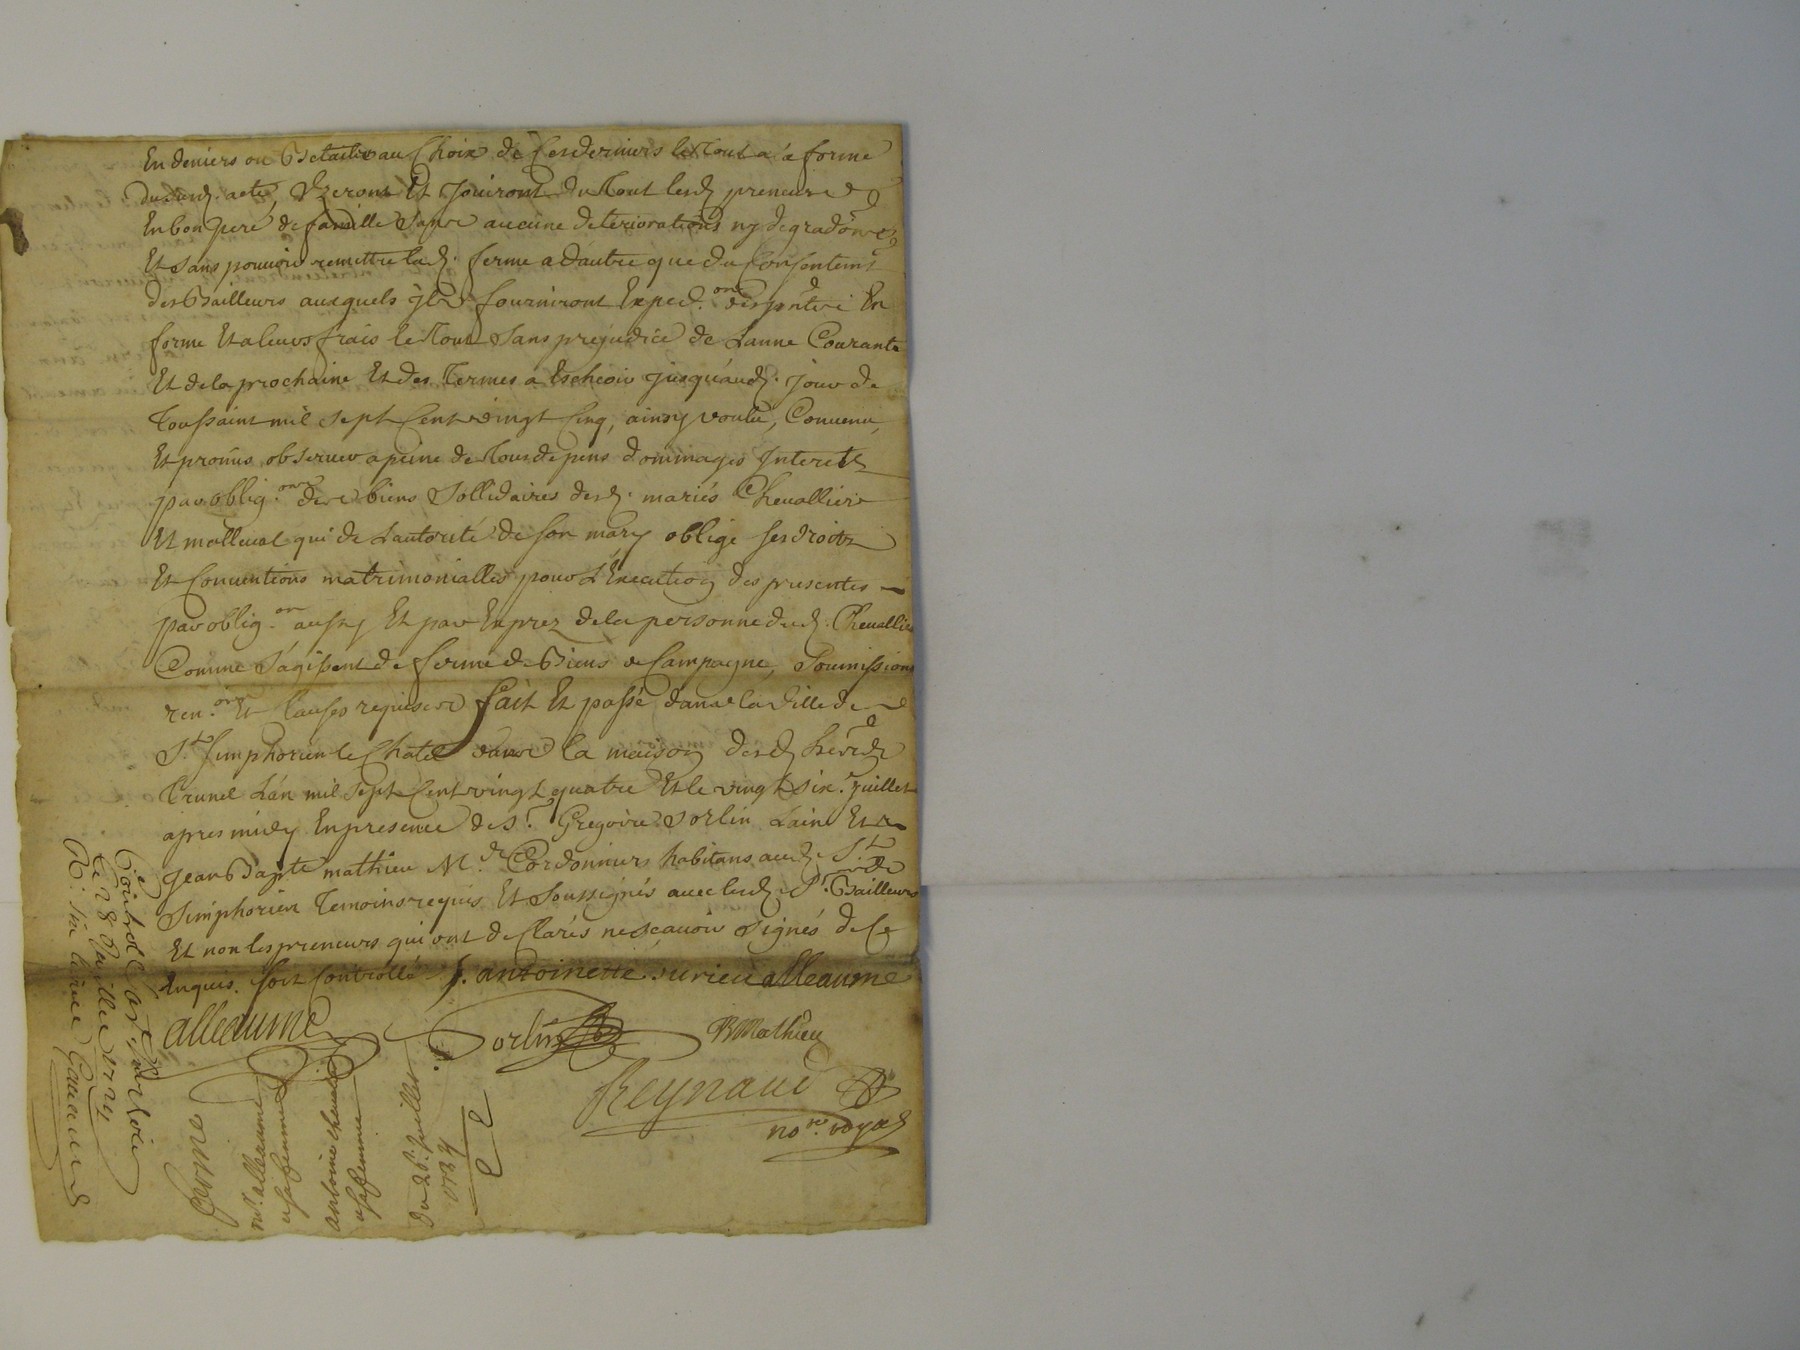 En deniers ou Betailes au Choix de Cesderniers le Tout a la forme
dudud. acte, Uzeront Et Jouiront du Tout lesd. preneurs
En bon pere de famille Sans aucune deteriorations ny degradõns
Et Sans pouvoir remettre lad. ferme a dautre que du Consentemt
des Bailleurs auxquels ils fourniront Exped.on des pntes En
forme Et a leurs frais le Tout Sans prejudice de Lanne Courante
Et de la prochaine Et des Termes a Escheoir jusqu'aud. jour de
Toussaint mil Sept Cent vingt Cinq, ainsy voulu, Convenu,
Et promis observer a peine de Tous depens dommages Interets
par oblig.on des biens Sollidaires desd. mariés Chevallier
Et malleval qui de Lautorité de Son mary oblige Ses droits
Et Conventions matrimonialles pour L'Execution des presentes
par oblig.on aussy Et par Exprez de la personne dud. Chevallier
Comme S'agissent de ferme de Biens de Campagne, Soumissions
ren.ons Et Clauses requises fait Et passé dans la Ville de
St. Simphorien le Chatel dans la maison desd. hers
Trunel L'an mil Sept Cent vingt quatre Et le vingt six.e Juillet
apres midy En presence de Sr. Gregoire Sorlin Lainé Et
Jean Bapte mathieu Md. Cordonniers habitans aud. St.
Simphorien Temoins requis Et Soussignés avec lesd. Srs. Bailleurs
Et non les preneurs qui ont declarés ne Scavoir Signés de Ce
Enquis. Soit Controllé J. antoinette surieu alleaume
alleaume Sorlin B Mathieu
Reynaud
nore. royal
Controllé a St. Simphorien
le 28 Juillet 1724
R: six livres
ferme
mr. alleaume
et sa femme
antoine chevallier
et sa femme
Du 26e. Juillet
1724